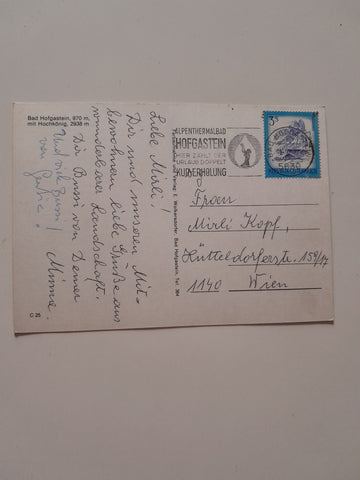 Bad Hofgastein, 870 m,
mit Hochkönig, 2938 m
Liebe Mirli!
Dir und unseren Mit-
bewohnern liebe Grüße aus
wunderbarer Landschaft.
Dir Bussi von Deiner
Minna.
Und viele Bussi
von
C 25
ALPENTHERMALBAD
HOFGASTEIN
HIER ZÄHLT DER
URLAUB DOPPELT
KUR ERHOLUNG
5630
3 S
REPUBLIK ÖSTERREICH
Verlag E. Wolkersdorfer, Bad Hofgastein, Tel. 364
Frau
Mirli Kopf,
Hütteldorferstr. 159/17
1140 Wien